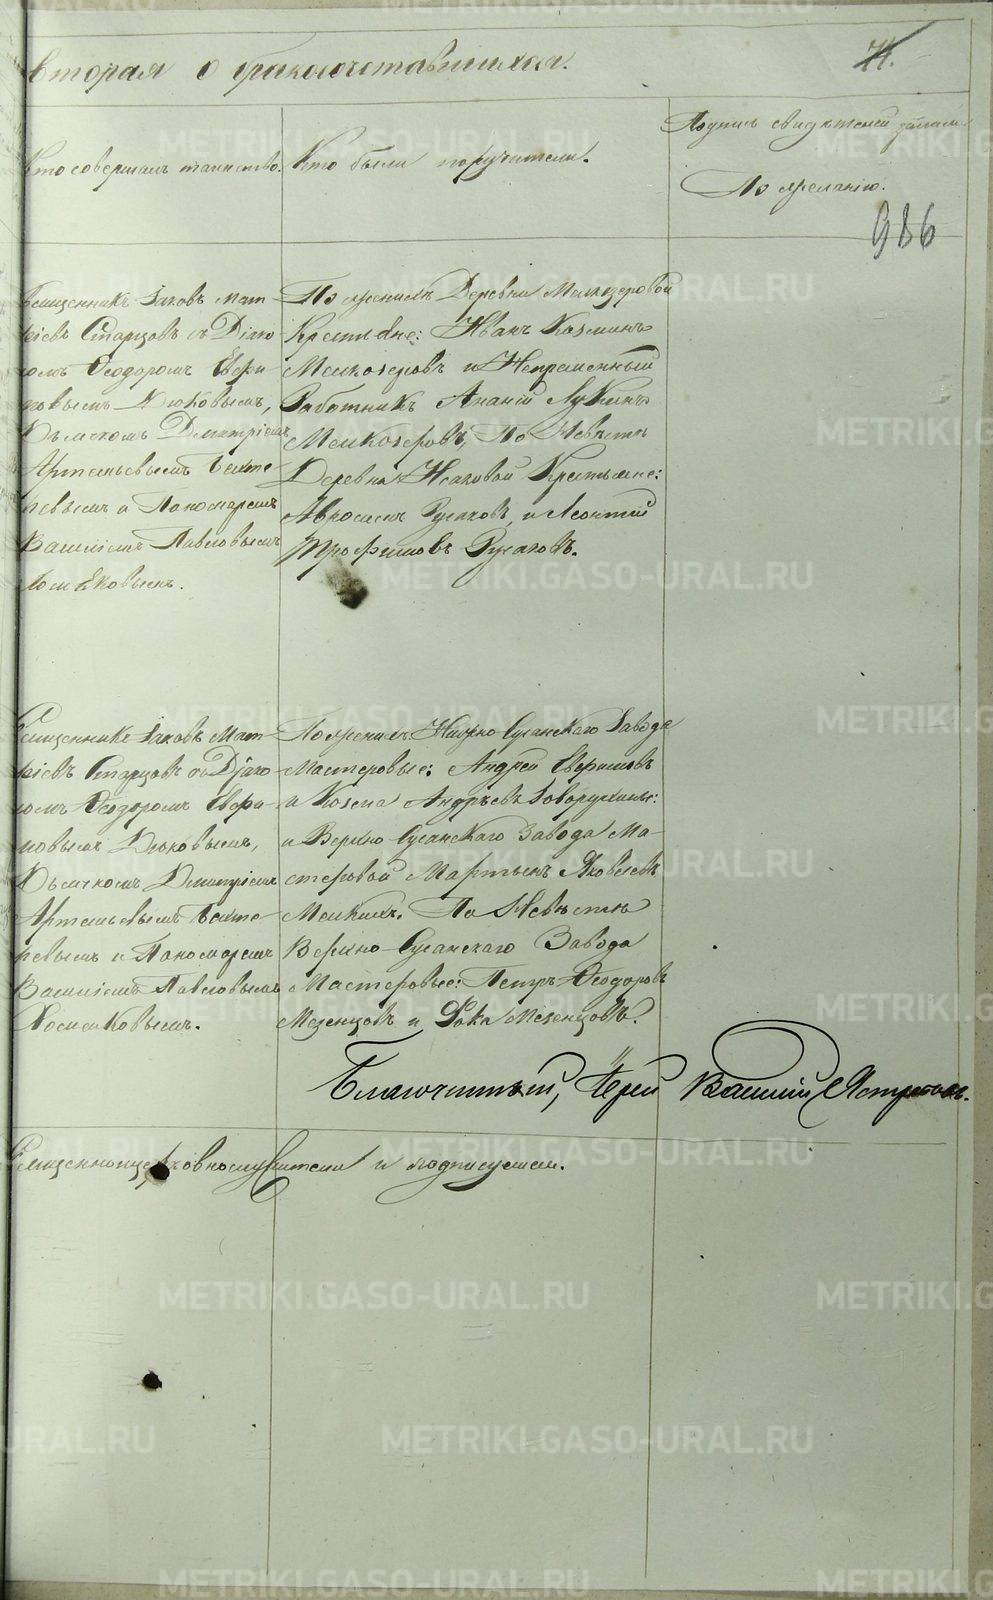 вторая о бракосочетавшихся.
74.
Кто совершалъ таинство.
Кто были поручители.
Подпись свидѣтелей записи
По желанію.
986
Священникъ Іаковъ Мат-
ѳіевъ Старцовъ съ Діако-
номъ Ѳеодоромъ Евфи-
мовымъ Дюковымъ,
Дьячкомъ Димитріемъ
Артемьевымъ
и Пономаремъ
Василіемъ Павловымъ
По женихѣ Деревни Мелкозеровой
Крестьяне: Иванъ Козминъ
Мелкозеровъ и Непременный
Работникъ Ананій Лукинъ
Мелкозеровъ, По Невѣстѣ
Деревни Исаковой Крестьяне:
Амвросимъ Русаковъ, и Леонтій
Трофимовъ Русаковъ.
Священникъ Іаковъ Мат-
ѳіевъ Старцовъ съ Діако-
номъ Ѳеодоромъ Евфи-
мовымъ Дюковымъ,
Дьячкомъ Димитріемъ
Артемьевымъ
и Пономаремъ
Василіемъ Павловымъ
По женихѣ Нижно-Сусанскаго Завода
Мастеровые: Андрей Евфимовъ
и Козма Андрѣевъ Говорухины:
и Верхно-Сусанскаго Завода Ма-
стеровой Мартынъ Яковлевъ
По Невѣстѣ
Верхно-Сусанскаго Завода
Мастеровые: Петръ Ѳеодоровъ
Мезенцовъ и Фока Мезенцовъ.
Благочинный, Іерей Василій
Священноцерковнослужители и подписуемся.
METRIKI.GASO-URAL.RU